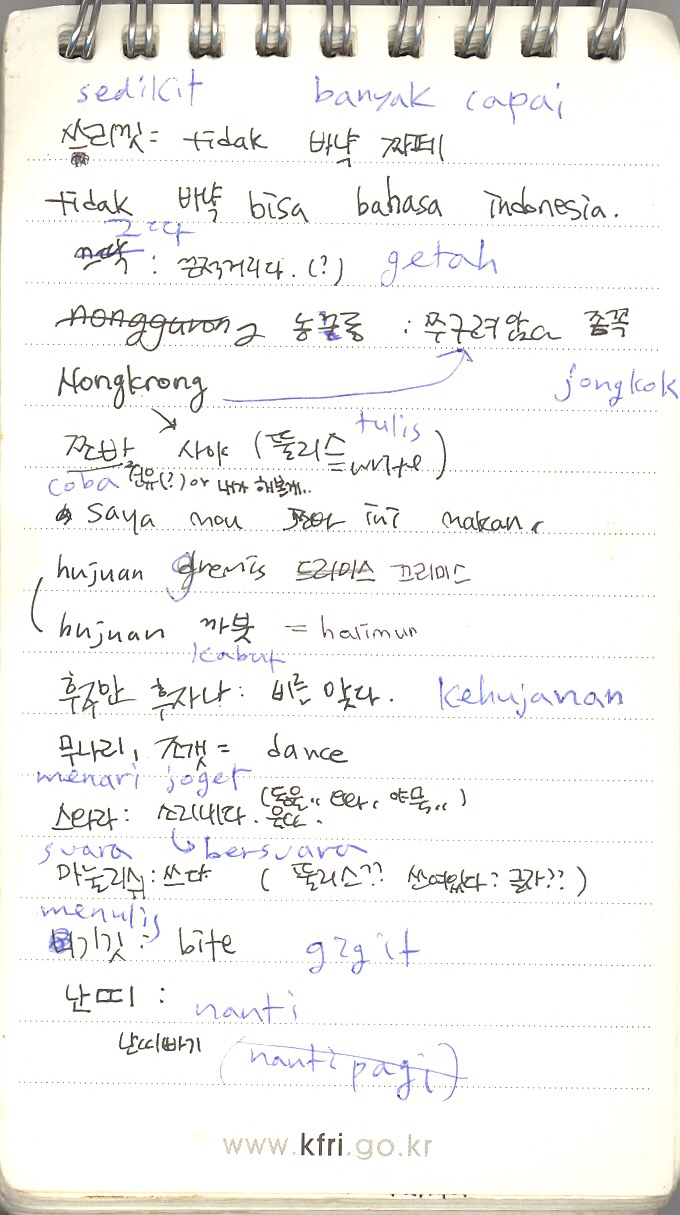 sedikit banyak capai
쓰리밋 = tidak 바냑 짜페
tidak 바냑 bisa bahasa indonesia.
그따
: 끈적거리다. (?) getah
nongguron 농끄롱 : 쭈구려앉아 쫑꼭
Nongkrong jongkok
tulis
쪼바 사야 (뚤리스 = write)
coba 권유(?) or 내가 해볼게..
saya mou 쪼바 ini makan.
hujuan gremis 드리미스 끄리미스
hujuan 까붓 = halimun
kabut
후주안 후자나 : 비를 맞다. kehujanan
무나리, 조갯 = dance
menari joget
스와라 : 소리내다. 운다.
suara bersuara
마눌리쉬 : 쓰다 ( 뚤리스?? 쓰여있다 : 글자?? )
menulis
기깃 : bite gigit
난띠 : nanti
난띠빠기 (nanti pagi)
www.kfri.go.kr